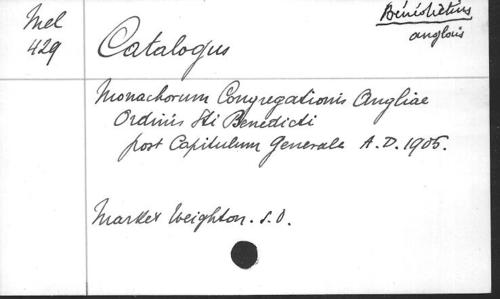 Mel
429
Bénédictins
anglais
Catalogus
Monachorum Congregationis Angliae
Ordinis Sti Benedicti
post Capitulum Generale A.D. 1905.
Market Weighton. S.D.